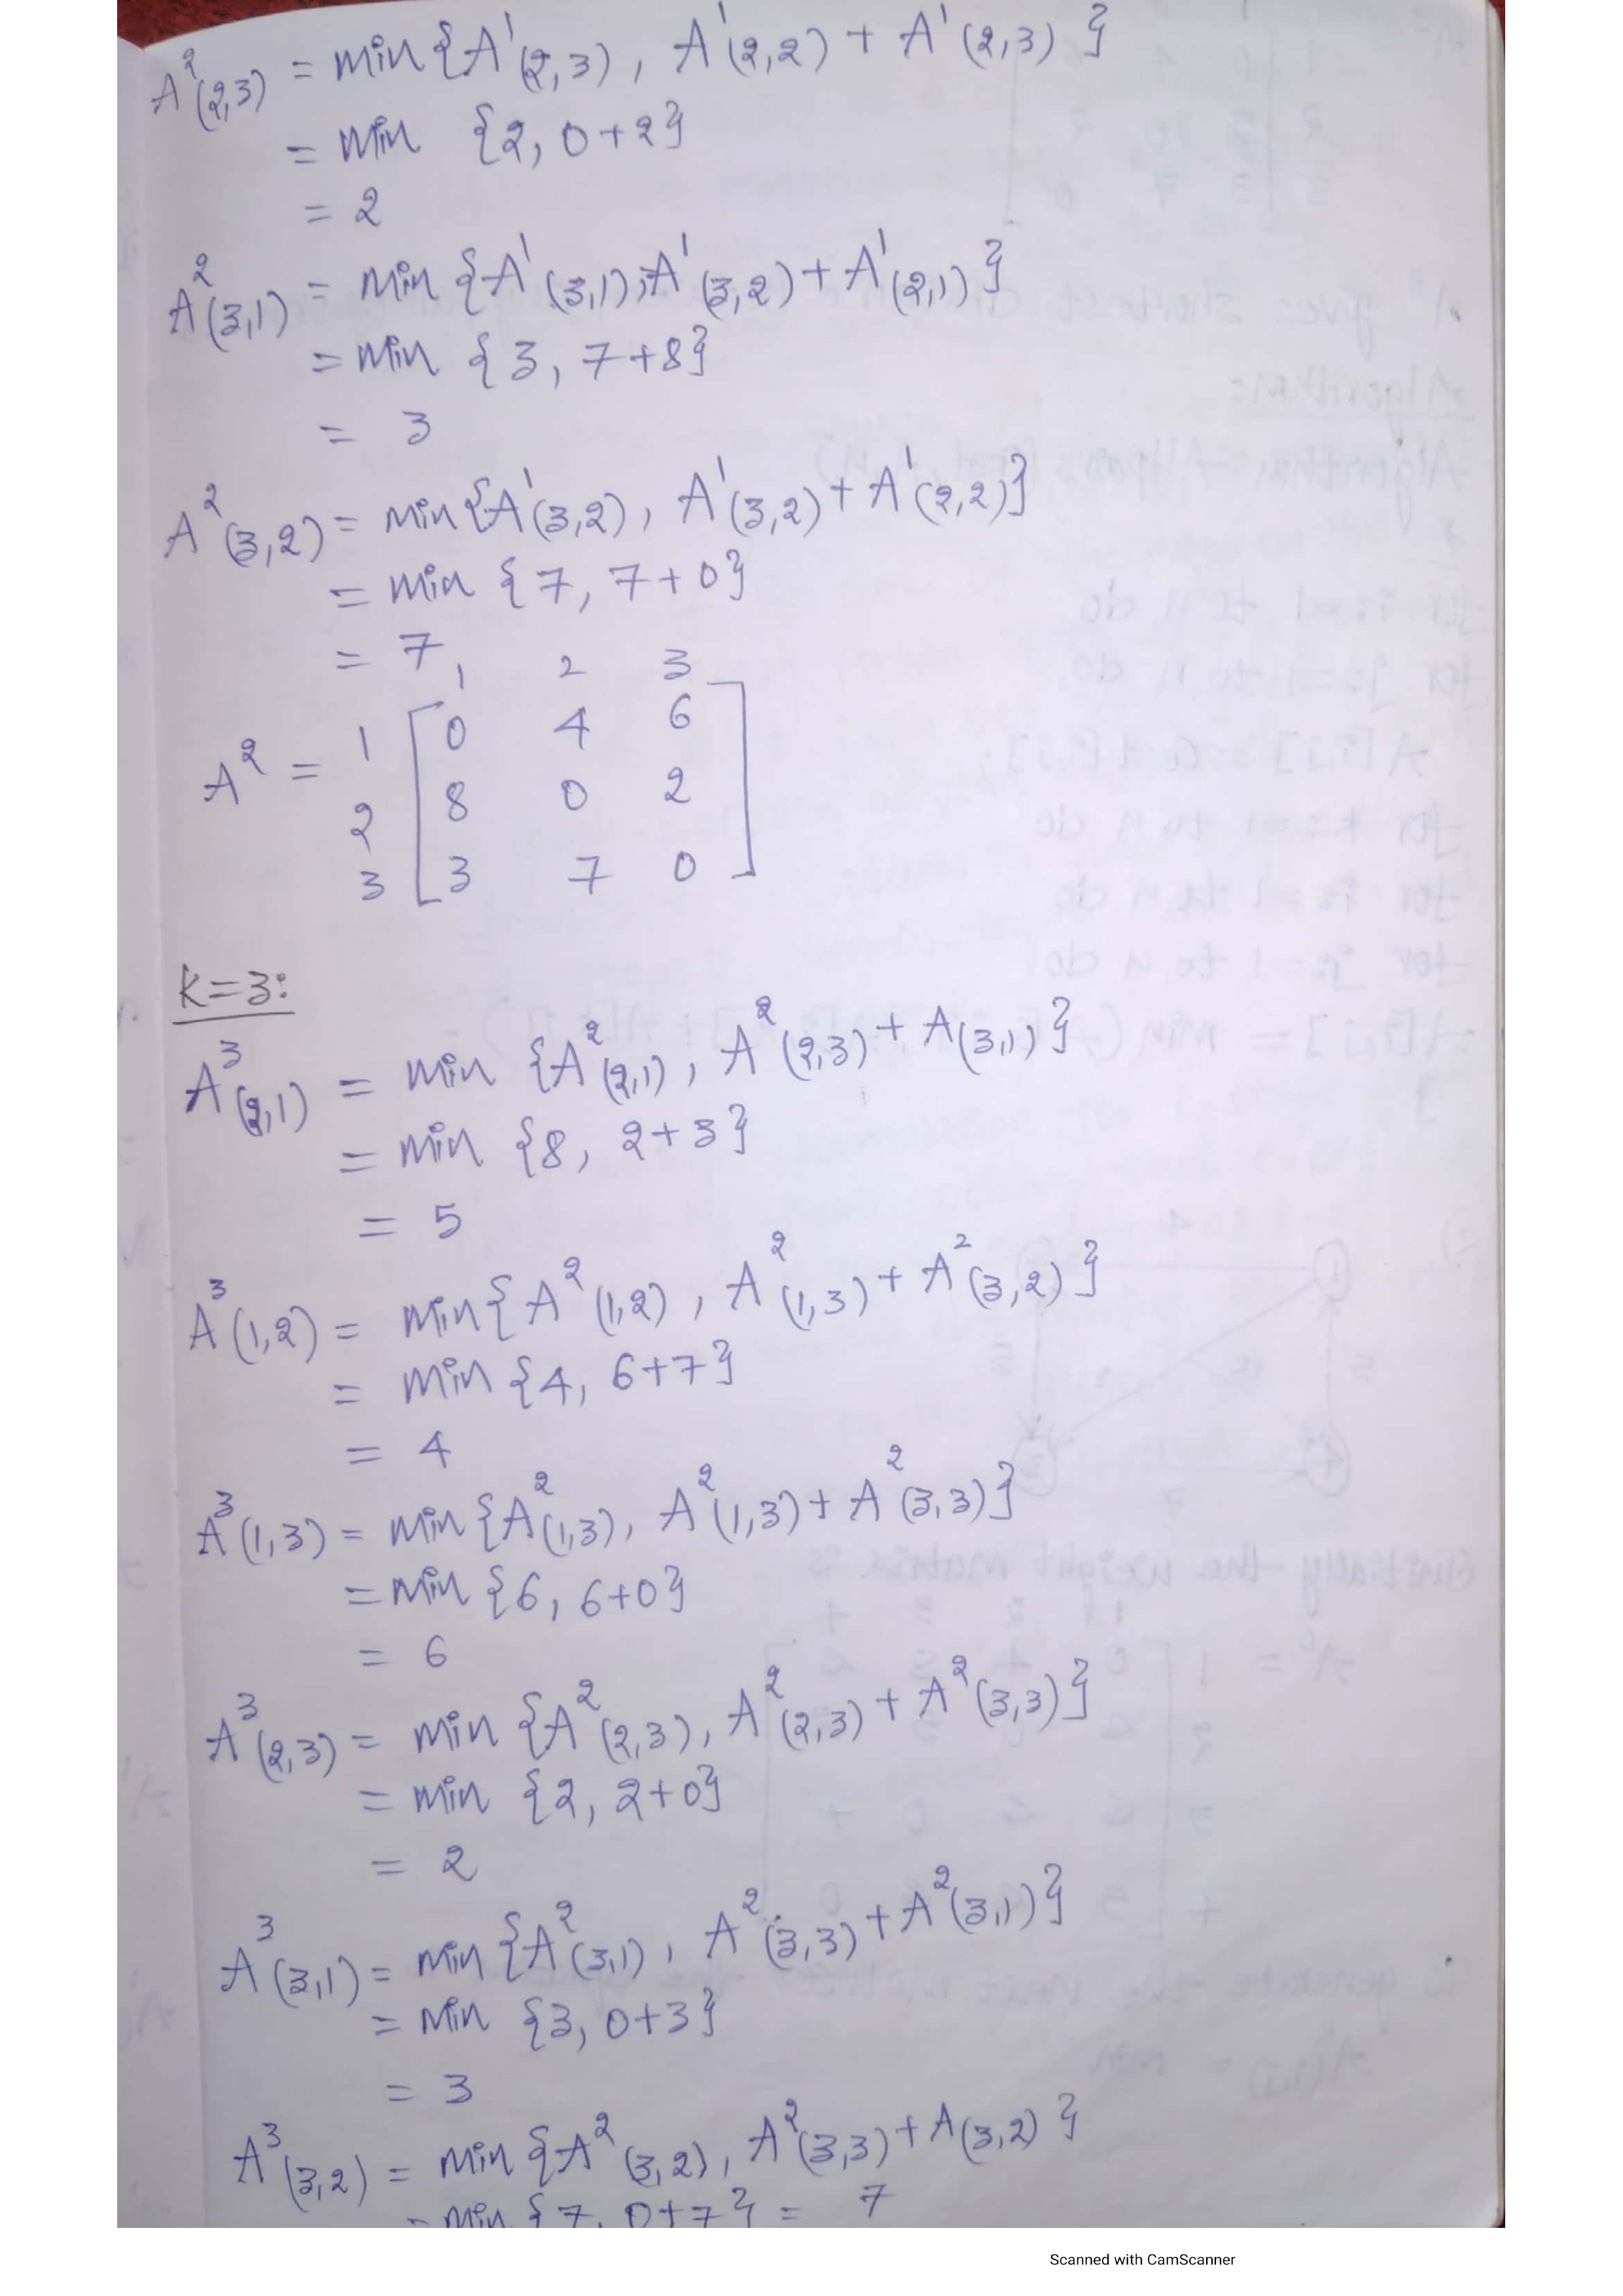 A²(2,3) = min{A¹(2,3), A¹(2,2) + A¹(2,3) }
= min {2, 0+2}
= 2
A²(3,1) = min {A¹(3,1), A¹(3,2) + A¹(2,1) }
= min { 3, 7+8}
= 3
A²(3,2) = min{A¹(3,2), A¹(3,2) + A¹(2,2)}
= min { 7, 7+0}
= 7
1 2 3
A² = 1 [ 0 4 6 ]
2 [ 8 0 2 ]
3 [ 3 7 0 ]
k=3:
A³(2,1) = min {A²(2,1), A²(2,3) + A(3,1)}
= min {8, 2+3}
= 5
A³(1,2) = min{A²(1,2), A²(1,3) + A²(3,2)}
= min {4, 6+7}
= 4
A³(1,3) = min{A²(1,3), A²(1,3) + A²(3,3)}
= min {6, 6+0}
= 6
A³(2,3) = min {A²(2,3), A²(2,3) + A²(3,3)}
= min {2, 2+0}
= 2
A³(3,1) = min {A²(3,1), A²(3,3) + A²(3,1)}
= min {3, 0+3}
= 3
A³(3,2) = min {A²(3,2), A²(3,3) + A(3,2) }
= min {7, 0+7} = 7
Scanned with CamScanner